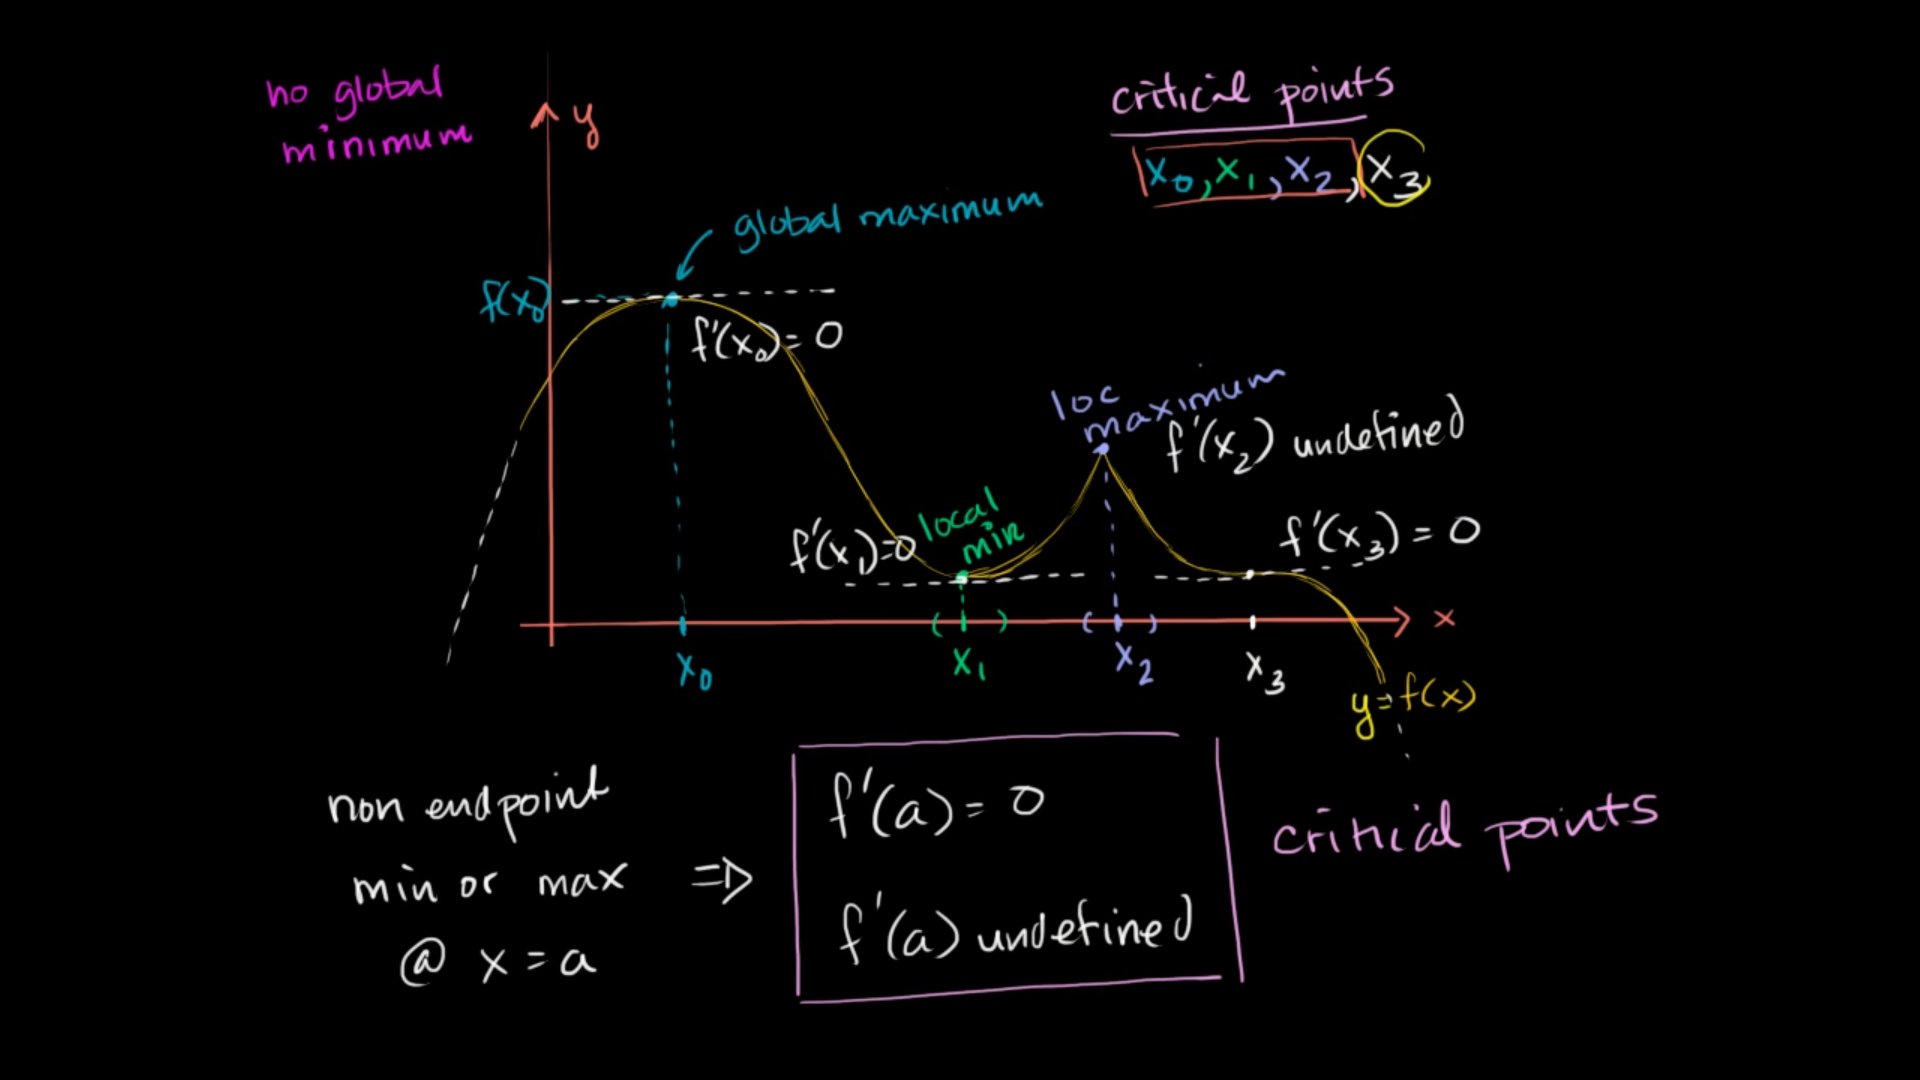 no global
minimum
y
critical points
x₀, x₁, x₂, x₃
global maximum
f(x₀)
f'(x₀) = 0
loc
maximum
f'(x₂) undefined
local
min
f'(x₁)=0
f'(x₃) = 0
( ) ( ) x
x₀ x₁ x₂ x₃
y = f(x)
non endpoint
min or max ⇒
@ x = a
f'(a) = 0
f'(a) undefined
critical points